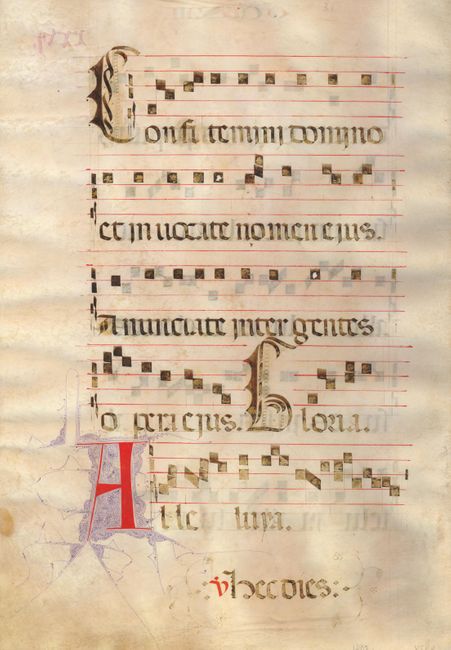 Confi temini domino
et in uocate nomen eius.
A nunciate inter gentes
o pera eius. Gloria.
Alle luya.
v hec dies: